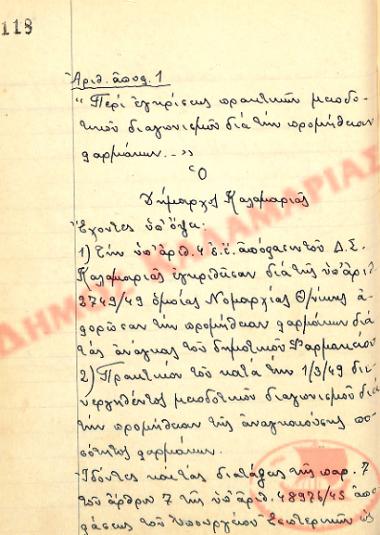 118
Ἀριθ. ἀποφ. 1
"Περί ἐγκρίσεως πρακτικῶν μειοδο-
τικοῦ διαγωνισμοῦ διά τήν προμήθειαν
φαρμάκων..-»
Ὁ
Δήμαρχος Καλαμαριᾶς
Ἔχοντες ὑπ' ὄψει:
1) Τήν ὑπ' ἀριθ. 4 ἐ.ἔ. ἀπόφασιν τοῦ Δ.Σ.
Καλαμαριᾶς ἐγκριθεῖσαν διά τῆς ὑπ' ἀριθ.
2749/49 ὁμοίας Νομαρχίας Θ/νίκης ἀ-
φορῶσαν τήν προμήθειαν φαρμάκων διά
τάς ἀνάγκας τοῦ δημοτικοῦ Φαρμακείου
2) Πρακτικόν τοῦ κατά τήν 1/3/49 δι-
ενεργηθέντος μειοδοτικοῦ διαγωνισμοῦ διά
τήν προμήθειαν τῆς ἀναγκαιούσης πο-
σότητος φαρμάκων.
Ἰδόντες καί τάς διατάξεις τῆς παρ. 7
τοῦ ἄρθρου 7 τῆς ὑπ' ἀριθ. 48976/45 ἀπο-
φάσεως τοῦ Ὑπουργείου Ἐσωτερικῶν ὡς
ΔΗΜΟΣ ΚΑΛΑΜΑΡΙΑΣ